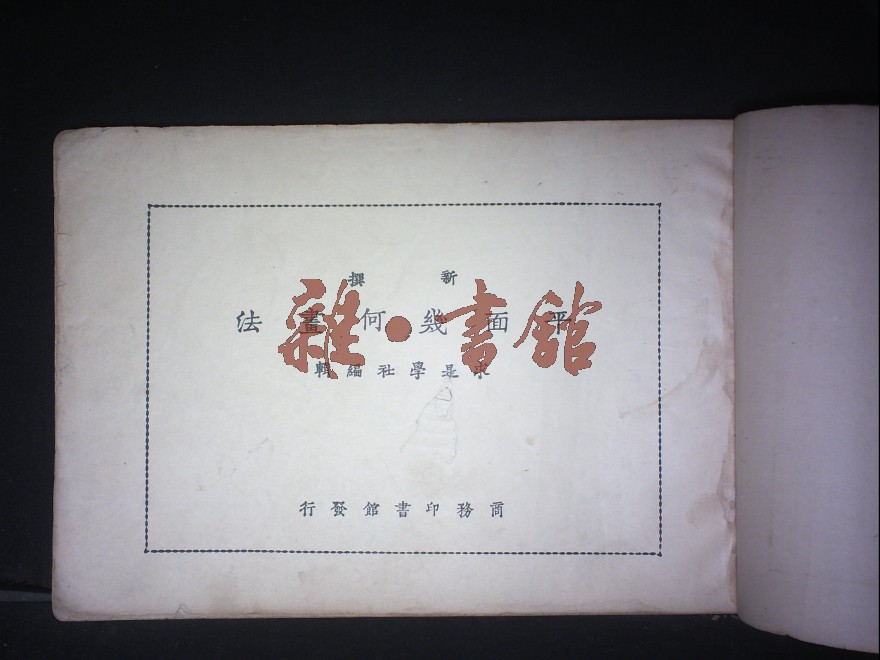 新撰
平面幾何畫法
求是學社編輯
商務印書館發行
雜·書館